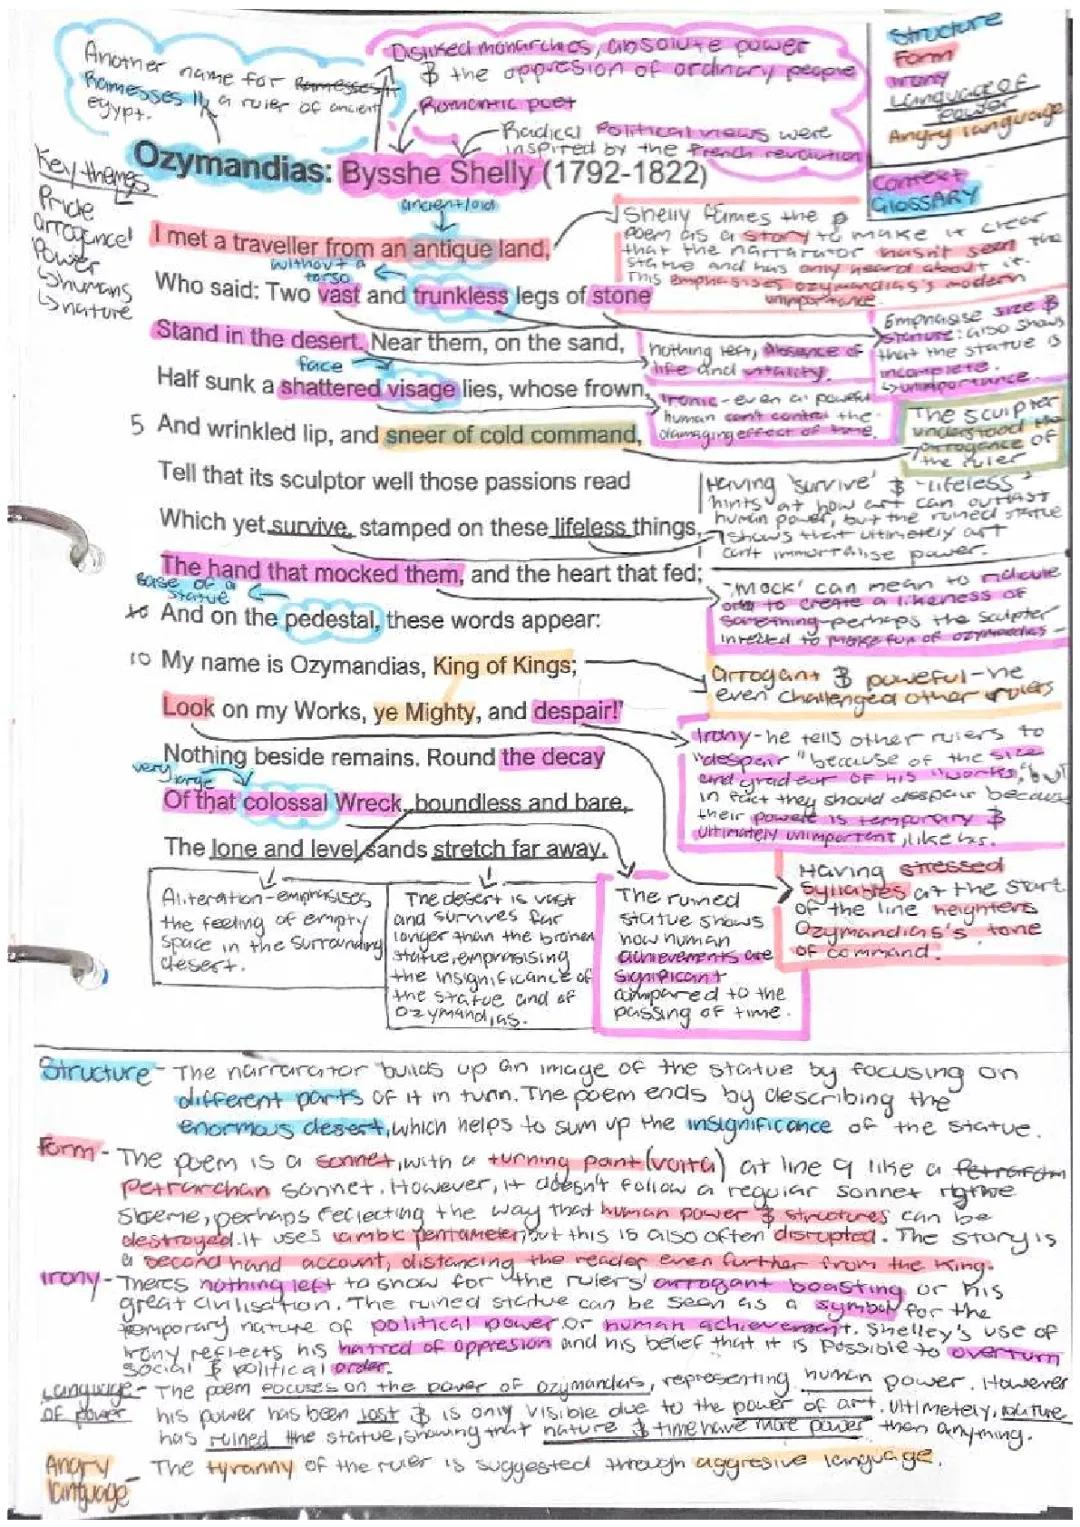 Another name for
Ramesses II, a ruler of ancient
egypt.
Disliked monarchies, absolute power
& the oppresion of ordinary people
Romantic poet
Radical Political views were
inspired by the French revolution
Structure
Form
Irony
Language of
Power
Angry language
Context
GLOSSARY
Key themes
Pride
arrogance
Power
↳humans
↳nature
Ozymandias: Bysshe Shelly (1792-1822)
ancient/old
I met a traveller from an antique land,
without a
torso
Who said: Two vast and trunkless legs of stone
Stand in the desert. Near them, on the sand,
face
Half sunk a shattered visage lies, whose frown,
5 And wrinkled lip, and sneer of cold command,
Tell that its sculptor well those passions read
Which yet survive, stamped on these lifeless things,
The hand that mocked them, and the heart that fed;
Base of a
statue
And on the pedestal, these words appear:
10 My name is Ozymandias, King of Kings;
Look on my Works, ye Mighty, and despair!'
Nothing beside remains. Round the decay
very large
Of that colossal Wreck, boundless and bare,
The lone and level sands stretch far away.
Shelly frames the
poem as a story to make it clear
that the narrarator hasn't seen the
statue and has only heard about it.
This emphasises ozymandias's modern
unimportance.
Emphasise size &
stature: also shows
that the statue is
incomplete.
↳unimportance.
nothing left, absence of
life and vitality.
Ironic - even a powerful
human can't control the
damaging effect of time.
The sculpter
understood the
arrogance of
the ruler
Having 'survive' & 'lifeless'
hints at how art can outlast
human power, but the ruined statue
shows that ultimately art
can't immortalise power.
'Mock' can mean to ridicule
or to create a likeness of
something - perhaps the sculpter
intended to make fun of ozymandias
arrogant & powerful - he
even challenged other rulers
Irony - he tells other rulers to
"despair" because of the size
and gradeur of his "works," but
in fact they should despair because
their power is temporary &
ultimately unimportant, like his.
Having stressed
syllables at the start
of the line heighters
Ozymandias's tone
of command.
Aliteration - emphasises
the feeling of empty
space in the surrounding
desert.
The desert is vast
and survives far
longer than the broken
statue, emphasising
the insignificance of
the statue and of
Ozymandias.
The ruined
statue shows
how human
achievements are
significant
compared to the
passing of time.
Structure - The narrarator builds up an image of the statue by focusing on
different parts of it in turn. The poem ends by describing the
enormous desert, which helps to sum up the insignificance of the statue.
Form - The poem is a sonnet, with a turning point (volta) at line 9 like a
Petrarchan sonnet. However, it doesn't follow a regular sonnet
perhaps reflecting the way that human power & structures can be
destroyed. It uses iambic pentameter, but this is also often disrupted. The story is
a second hand account, distancing the reader even further from the King.
Irony - Theres nothing left to show for the rulers' arrogant boasting or his
great civilisation. The ruined statue can be seen as a symbol for the
temporary nature of political power or human achievement. Shelley's use of
irony reflects his hatred of oppresion and his belief that it is possible to overturn
social & political order.
Language of power - The poem focuses on the power of ozymandias, representing human power. However
his power has been lost & is only visible due to the power of art. Ultimetely, nature
has ruined the statue, showing that nature & time have more power than anything.
Angry language - The tyranny of the ruler is suggested through aggresive language.